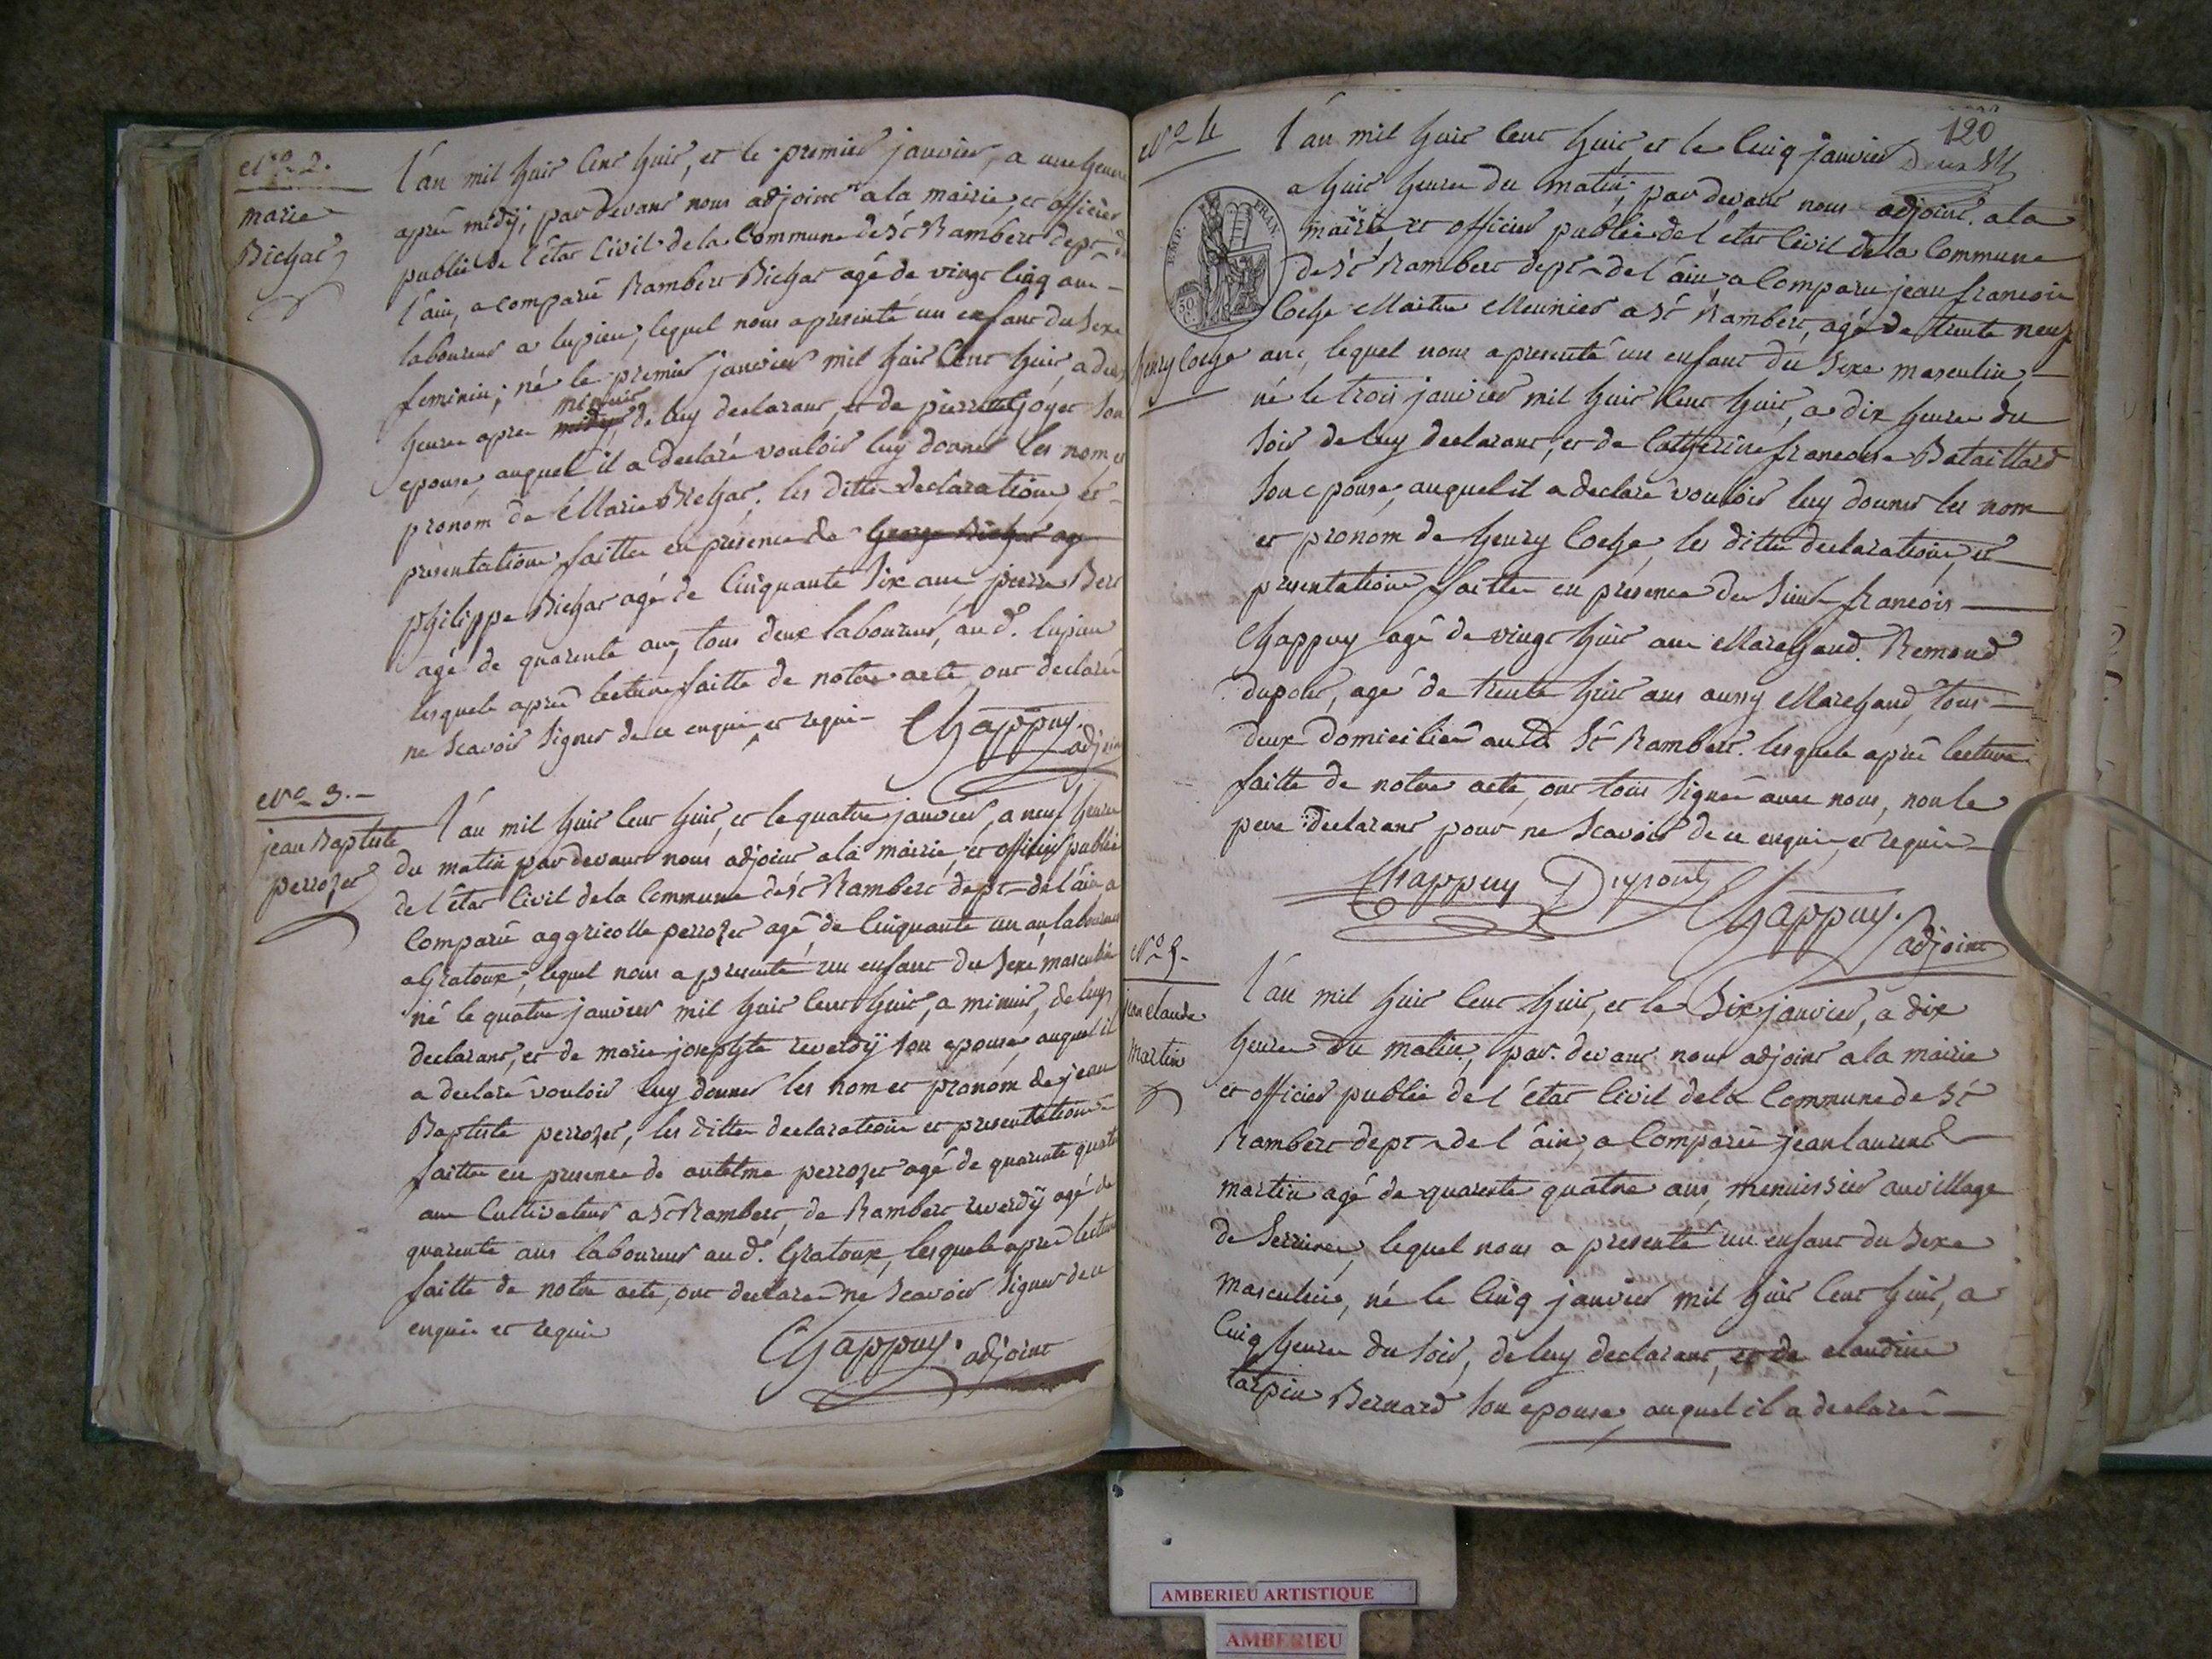 N.º 2.
marie
Bichat
l'an mil huit Cent huit, et le premier janvier, a une heure
apres midy, par devant nous adjoint a la mairie, et officier
public de l'état Civil de la Commune de St Rambert dept de
l'ain, a comparu Rambert Bichat agé de vingt Cinq ans
laboureur a lupieu, lequel nous a presenté un enfant du Sexe
feminin, né le premier janvier mil huit Cent huit, a deux
minuit
heures apres midy, de luy declarant, et de pierrette joyet Son
epouse, auquel il a declaré vouloir luy donner les nom et
pronom de Marie Bichat, les dittes declarations, et
presentations faittes en presence de George Bichat agé
philippe Bichat agé de Cinquante Six ans, pierre Bert
agé de quarente ans, tous deux laboureurs, au d. lupieu
lesquels apres lecture faitte de notre acte, ont declaré
ne Scavoir Signer de ce enquis et requis
Chappuy.
adjoint
N.º 3.
jean Baptiste
perrozet
l'an mil huit Cent huit, et le quatre janvier, a neuf heures
du matin par devant nous adjoint a la mairie, et officier public
de l'état Civil de la Commune de St Rambert dept de l'ain a
Comparu aggricolle perrozet agé de Cinquante un an, laboureur
a Gratoux, lequel nous a presenté un enfant du Sexe masculin
né le quatre janvier mil huit Cent huit, a minuit, de luy
declarant, et de marie josephte reverdy Son epouse, auquel il
a declaré vouloir luy donner les nom et pronom de jean
Baptiste perrozet, les dittes declarations et presentations
faittes en presence de antelme perrozet agé de quarente quatre
ans Cultivateur a St Rambert, de Rambert reverdy agé de
quarente ans laboureur au d. Gratoux, lesquels apres lecture
faitte de notre acte, ont declaré ne Scavoir Signer de ce
enquis et requis
Chappuy. adjoint
120
N.º 4
l'an mil huit Cent huit, et le Cinq janvier
a huit heures du matin, par devant nous adjoint a la
EMP. FRAN.
50 C.
mairie, et officier public de l'état Civil de la Commune
de St Rambert dept de l'ain, a Comparu jean francois
Coche Maitre Meunier a St Rambert, agé de trente neuf
henry Coche
ans, lequel nous a presenté un enfant du Sexe masculin,
né le trois janvier mil huit Cent huit, a dix heures du
Soir de luy declarant, et de Catherine francoise Bataillard
Son epouse, auquel il a declaré vouloir luy donner les nom
et pronom de henry Coche, les dittes declarations, et
presentations faittes en presence de Sieur francois
Chappuy agé de vingt huit ans Marchand. Remond
dupont, agé de trente huit ans aussy Marchand, tous
deux domiciliés au d. St Rambert. lesquels apres lecture
faitte de notre acte, ont tous Signés avec nous, non le
pere declarant, pour ne Scavoir de ce enquis, et requis
Chappuy Dupont Chappuy.
adjoint
N.º 5
jean claude
martin
l'an mil huit Cent huit, et le Six janvier, a dix
heures du matin, par devant nous adjoint a la mairie
et officier public de l'état Civil de la Commune de St
Rambert dept de l'ain, a Comparu jean laurent
martin agé de quarente quatre ans, menuissier au village
de Serrieres, lequel nous a presenté un enfant du Sexe
masculin, né le Cinq janvier mil huit Cent huit, a
Cinq heures du Soir, de luy declarant, et de claudine
tarpin Bernard Son epouse, auquel il a declaré
AMBERIEU ARTISTIQUE
AMBERIEU